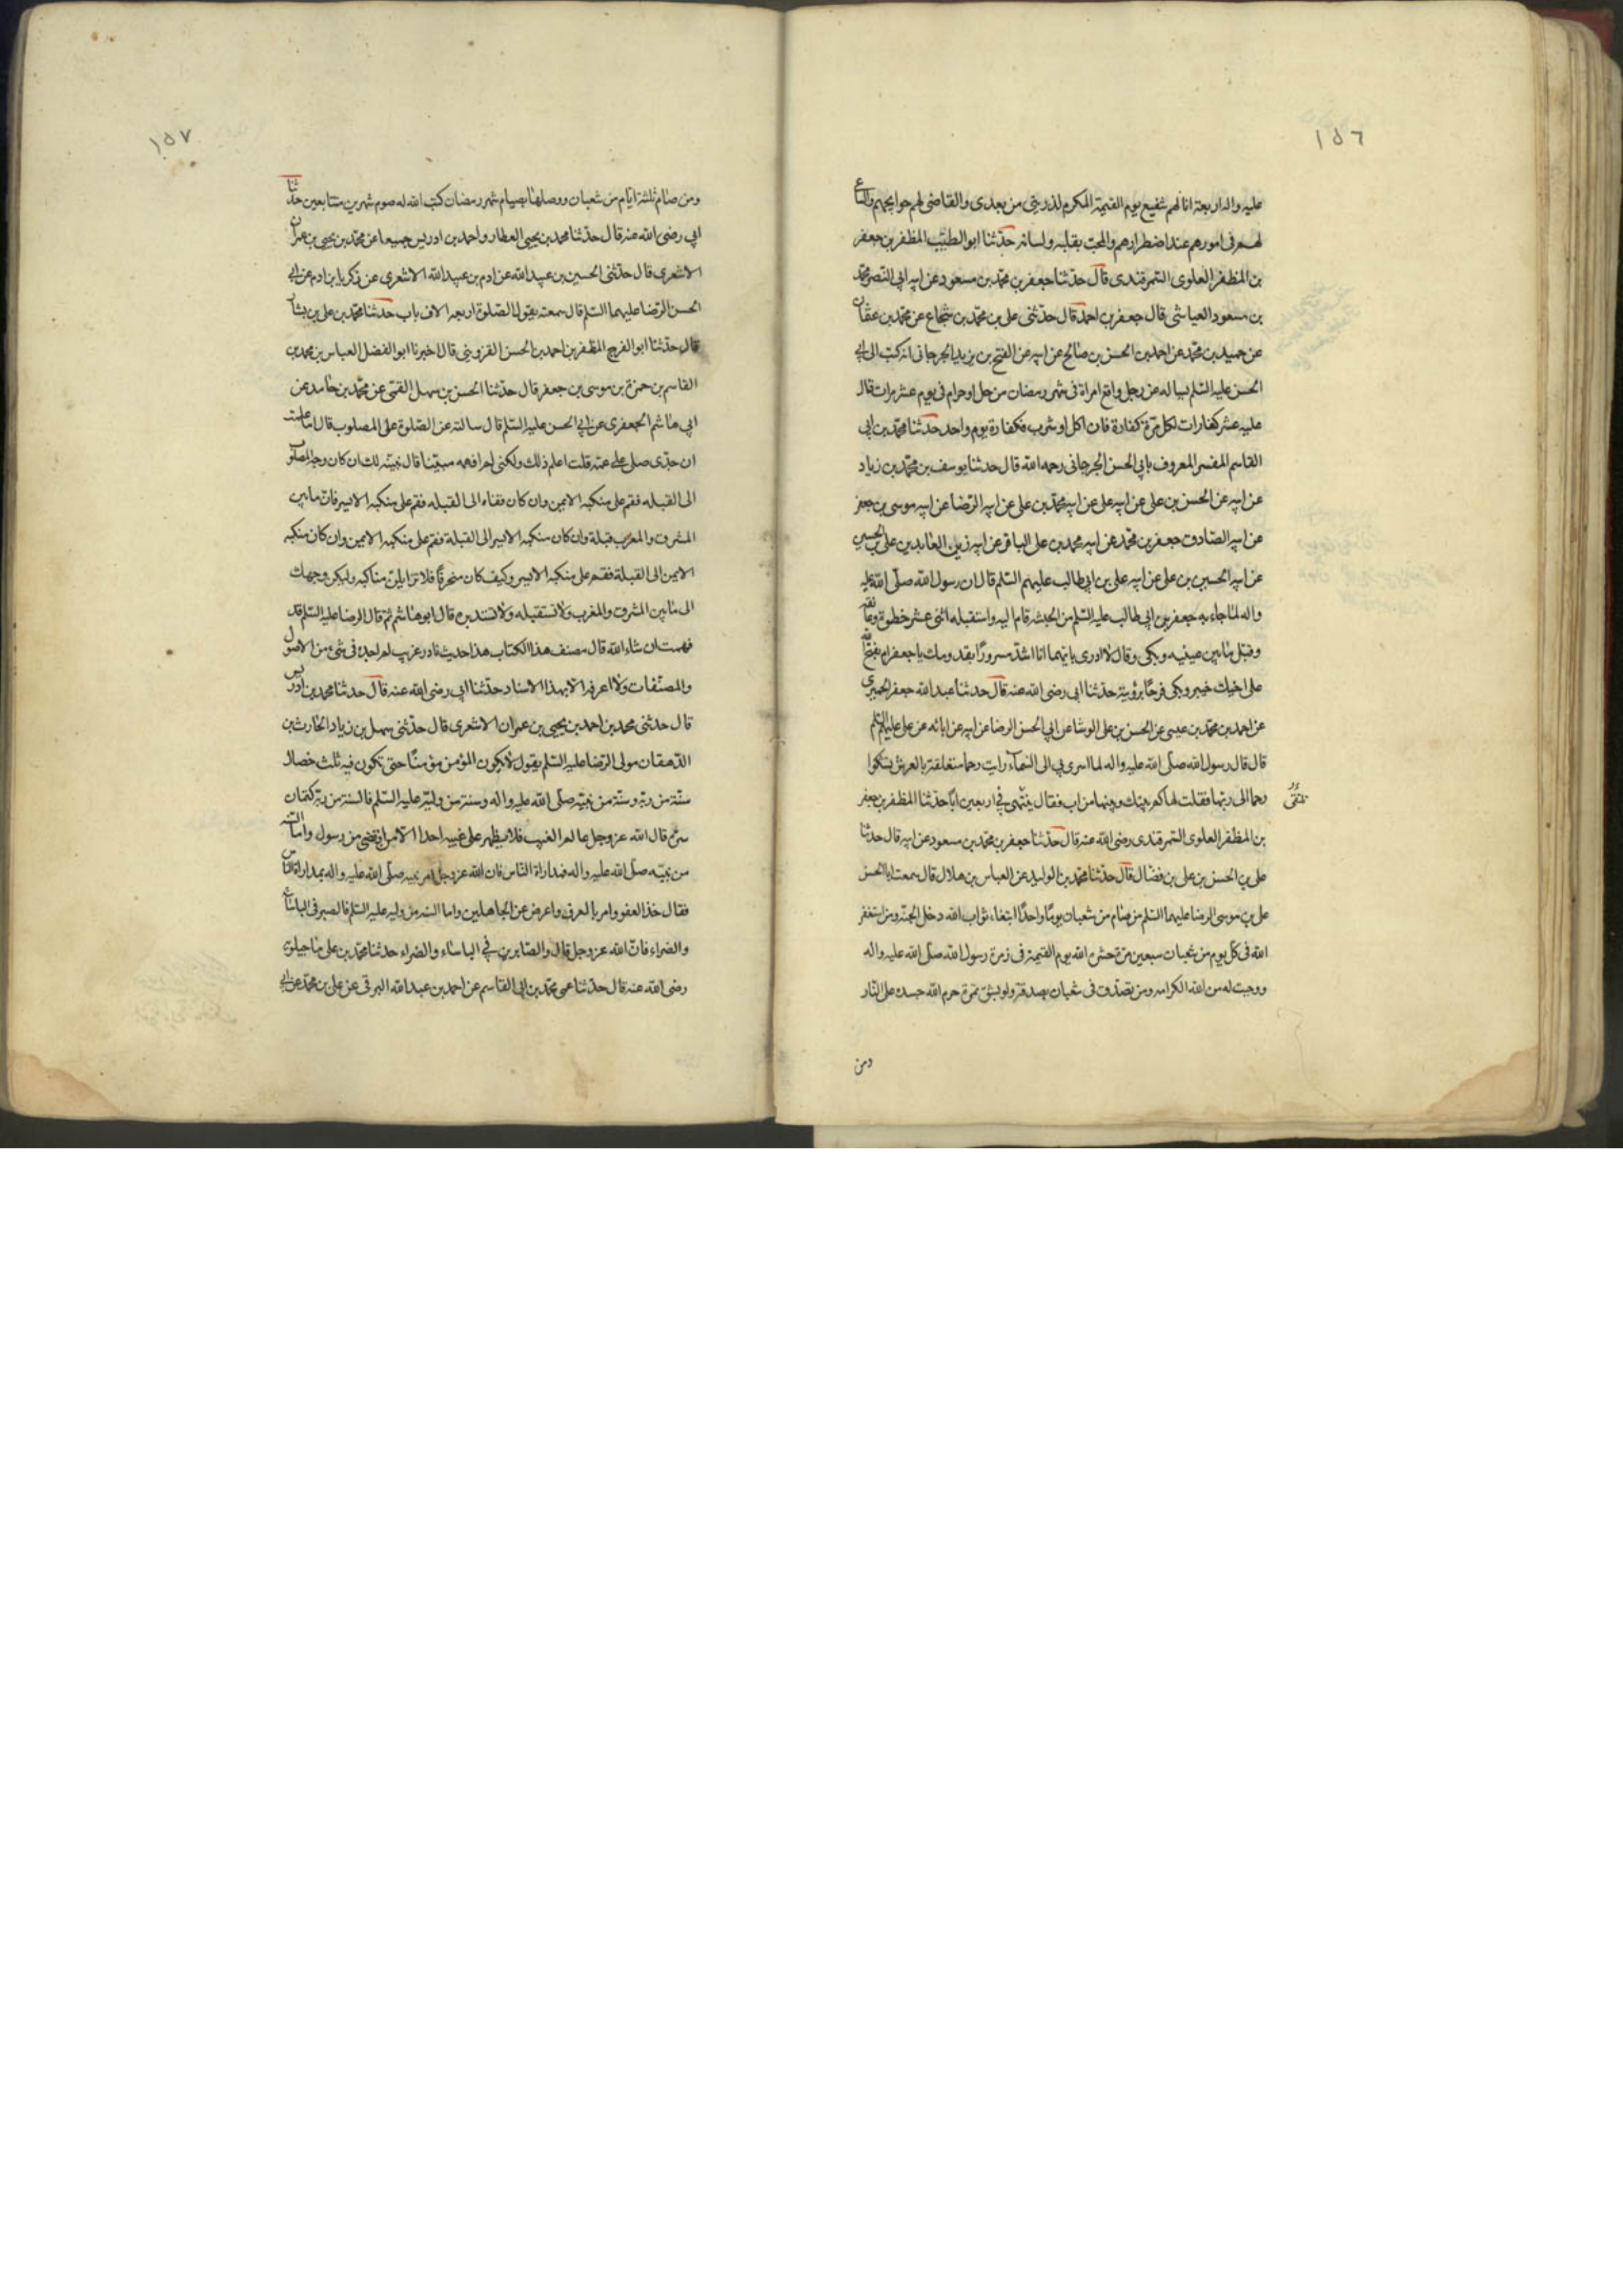 ١٥٦
عليه واله اربعة انا لهم شفيع يوم القيمة المكرم لذريتى من بعدى والقاضى لهم حوايجهم والساع
لهم فى امورهم عند اضطرارهم والمحب بقلبه ولسانه حدثنا ابو الطيب المظفر بن جعفر
بن المظفر العلوى السمرقندى قال حدثنا جعفر بن محمد بن مسعود عن ابيه ابى النصر محمد
بن مسعود العياشى قال جعفر بن احمد قال حدثنى على بن محمد بن شجاع عن محمد بن عثمان
عن حميد بن محمد عن احمد بن الحسن بن صالح عن ابيه عن الفتح بن يزيد الجرجانى انه كتب الى ابى
الحسن عليه السلم يساله عن رجل واقع امراة فى شهر رمضان من حل او حرام فى يوم عشر مرات قال
عليه عشر كفارات لكل مرة كفارة فان اكل او شرب فكفارة يوم واحد حدثنا محمد بن ابى
القاسم المفسر المعروف بابى الحسن الجرجانى رحمه الله قال حدثنا يوسف بن محمد بن زياد
عن ابيه عن الحسن بن على عن ابيه على عن ابيه محمد بن على عن ابيه الرضا عن ابيه موسى بن جعفر
عن ابيه الصادق جعفر بن محمد عن ابيه محمد بن على الباقر عن ابيه زين العابدين على بن الحسين
عن ابيه الحسين بن على عن ابيه على بن ابى طالب عليهم السلم قال ان رسول الله صلى الله عليه
واله لما جاءه جعفر بن ابى طالب عليه السلم من الحبشه قام اليه واستقبله اثنى عشر خطوة وعانقه
وقبل ما بين عينيه وبكى وقال لا ادرى بايهما انا اشد سرورا بقدومك يا جعفر ام بفتح الله
على اخيك خيبر وبكى فرحا برؤيته حدثنا ابى رضى الله عنه قال حدثنا عبد الله جعفر الحميرى
عن احمد بن محمد بن عيسى عن الحسن بن على الوشا عن ابى الحسن الرضا عن ابيه عن ابائه عن على عليهم السلم
قال قال رسول الله صلى الله عليه واله لما اسرى بى الى السماء رايت رحما متعلقة بالعرش يشكوا
رحما الى ربها فقلت لها كم بينك وبينها من اب فقال يلتقى فى اربعين ابا حدثنا المظفر بن جعفر
بن المظفر العلوى السمرقندى رضى الله عنه قال حدثنا جعفر بن محمد بن مسعود عن ابيه قال حدثنا
على بن الحسن بن على بن فضال قال حدثنا محمد بن الوليد عن العباس بن هلال قال سمعت ابا الحسن
على بن موسى الرضا عليهما السلم من صام من شعبان يوما واحدا ابتغاء ثواب الله دخل الجنه ومن استغفر
الله فى كل يوم من شعبان سبعين مرة حشره الله يوم القيمة فى زمرة رسول الله صلى الله عليه واله
ووجبت له من الله الكرامه ومن تصدق فى شعبان بصدقة ولو بشق تمرة حرم الله جسده على النار
ومن
١٥٧
ومن صام ثلثة ايام من شعبان ووصلها بصيام شهر رمضان كتب الله له صوم شهرين متتابعين حدثنا
ابى رضى الله عنه قال حدثنا محمد بن يحيى العطار واحمد بن ادريس جميعا عن محمد بن يحيى بن عمران
الاشعرى قال حدثنى الحسين بن عبيد الله عن ادم بن عبد الله الاشعرى عن زكريا بن ادم عن ابى
الحسن الرضا عليهما السلم قال سمعته يقول الصلوة اربعه الاف باب حدثنا محمد بن على بن بشار
قال حدثنا ابو الفرج المظفر بن احمد بن الحسن القزوينى قال اخبرنا ابو الفضل العباس بن محمد بن
القاسم بن حمزة بن موسى بن جعفر قال حدثنا الحسن بن سهل القمى عن محمد بن حامد عن
ابى هاشم الجعفرى عن ابى الحسن عليه السلم قال سالته عن الصلوة على المصلوب قال اما علمت
ان جدى صلى على عمه قلت اعلم ذلك ولكنى لم افهمه مبينا قال نبينه لك ان كان وجه المصلوب
الى القبله فقم على منكبه الايمن وان كان قفاه الى القبله فقم على منكبه الايسر فان ما بين
المشرق والمغرب قبلة وان كان منكبه الايسر الى القبلة فقم على منكبه الايمن وان كان منكبه
الايمن الى القبلة فقم على منكبه الايسر وكيف كان منحرفا فلا تزايلن مناكبه وليكن وجهك
الى ما بين المشرق والمغرب ولا تستقبله ولا تستدبره قال ابو هاشم ثم قال الرضا عليه السلم قد
فهمت ان شاء الله قال مصنف هذا الكتاب هذا حديث نادر غريب لم اجده فى شىء من الاصول
والمصنفات ولا اعرفه الا بهذا الاسناد حدثنا ابى رضى الله عنه قال حدثنا محمد بن ادريس
قال حدثنى محمد بن احمد بن يحيى بن عمران الاشعرى قال حدثنى سهل بن زياد الحارث بن
الدهقان مولى الرضا عليه السلم يقول لا يكون المؤمن مؤمنا حتى تكون فيه ثلث خصال
سنة من ربه وسنة من نبيه صلى الله عليه واله وسنة من وليه عليه السلم فالسنة من ربه كتمان
سره قال الله عز وجل عالم الغيب فلا يظهر على غيبه احدا الا من ارتضى من رسول واما السنه
من نبيه صلى الله عليه واله فمداراة الناس فان الله عز وجل امر نبيه صلى الله عليه واله بمداراة الناس
فقال خذ العفو وامر بالعرف واعرض عن الجاهلين واما السنه من وليه عليه السلم فالصبر فى الباساء
والضراء فان الله عز وجل قال والصابرين فى الباساء والضراء حدثنا محمد بن على ماجيلوى
رضى الله عنه قال حدثنا عمى محمد بن ابى القاسم عن احمد بن عبد الله البرقى عن على بن محمد عن ابى